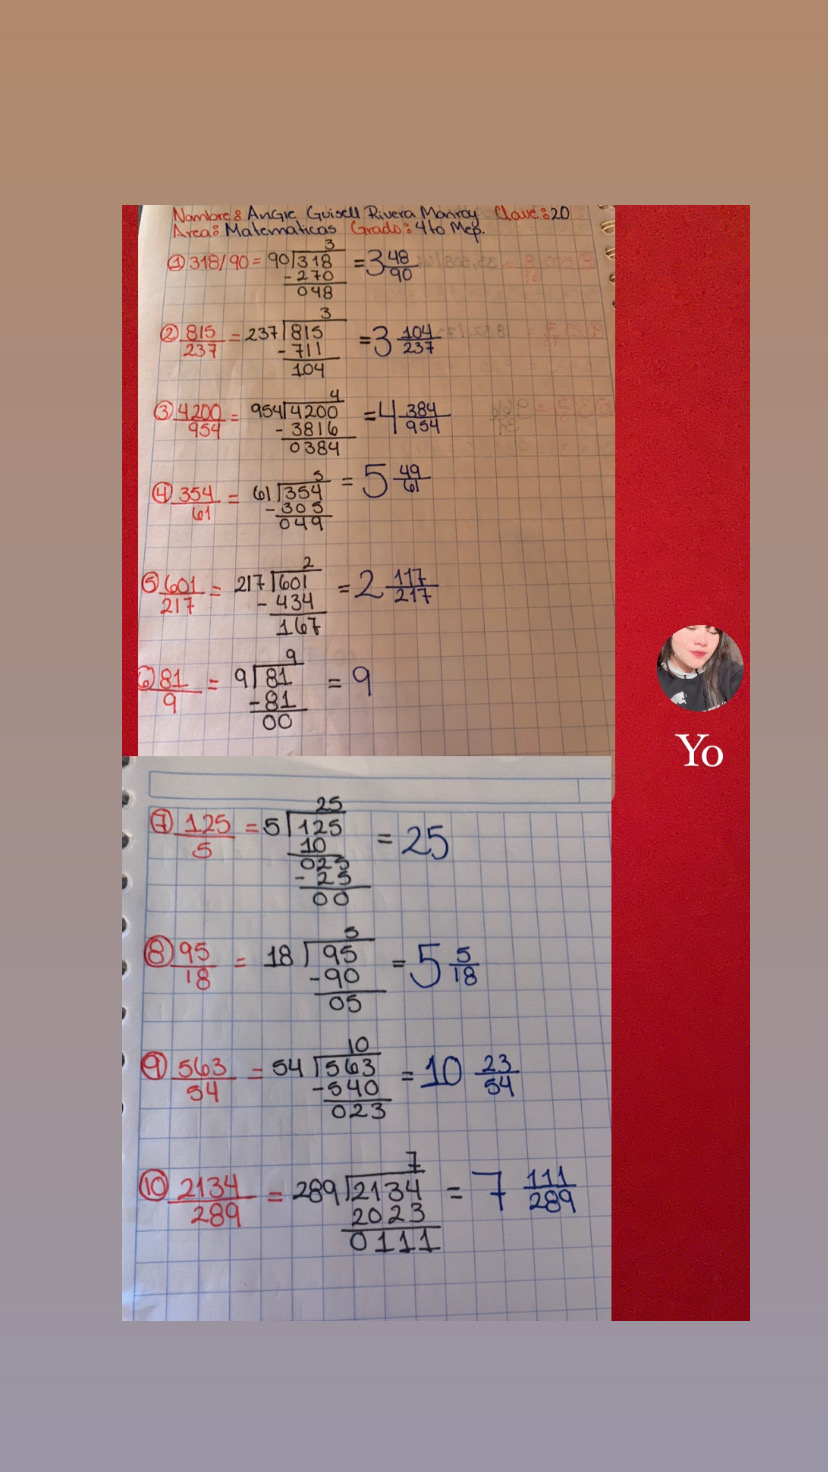 Nombre: Angie Guisell Rivera Monroy Clave: 20
Area: Matematicas Grado: 4to Mep.
3
① 318/90 = 90 318 = 3 48/90
-270
048
3
② 815/237 = 237 815 = 3 104/237
-711
104
4
③ 4200/954 = 954 4200 = 4 384/954
-3816
0384
5
④ 354/61 = 61 354 = 5 49/61
-305
049
2
⑤ 601/217 = 217 601 = 2 117/217
-434
167
9
⑥ 81/9 = 9 81 = 9
-81
00
Yo
25
⑦ 125/5 = 5 125 = 25
10
025
-25
00
5
⑧ 95/18 = 18 95 = 5 5/18
-90
05
10
⑨ 563/54 = 54 563 = 10 23/54
-540
023
7
⑩ 2134/289 = 289 2134 = 7 111/289
2023
0111